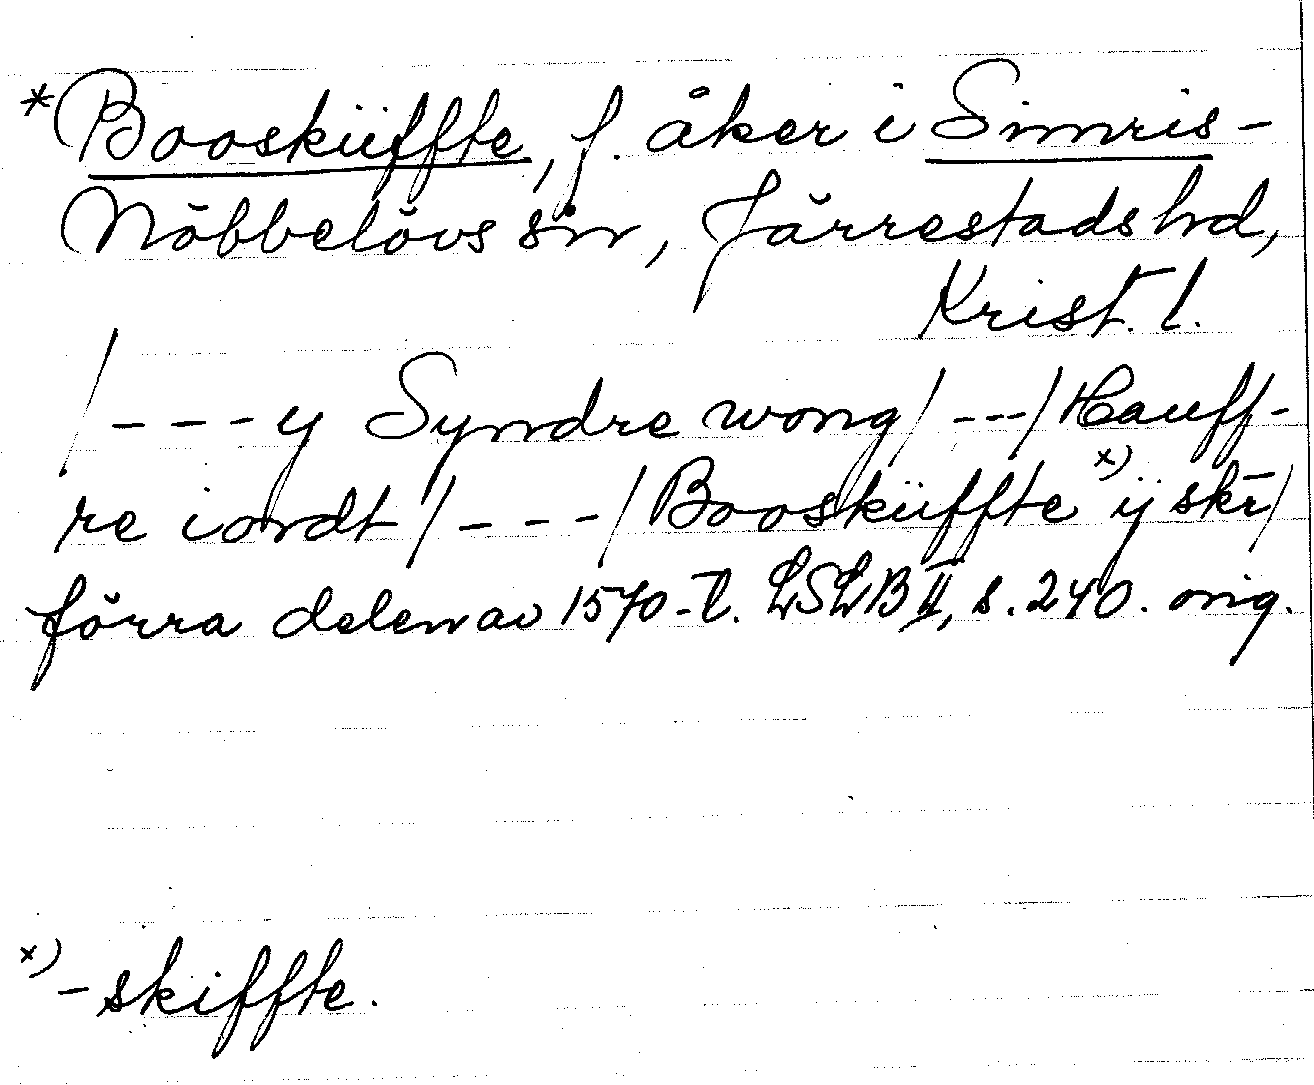 *Booskiiffte, f. åker i Simris-
Nöbbelövs sn, Järrestads hd,
Krist. l.
/---y Syndre wong/---/Hauff-
re iordt/---/Booskiiffte x) ij skr/
förra delen av 1570-t. LSLB II, s. 240. orig.
x) -skiffte.